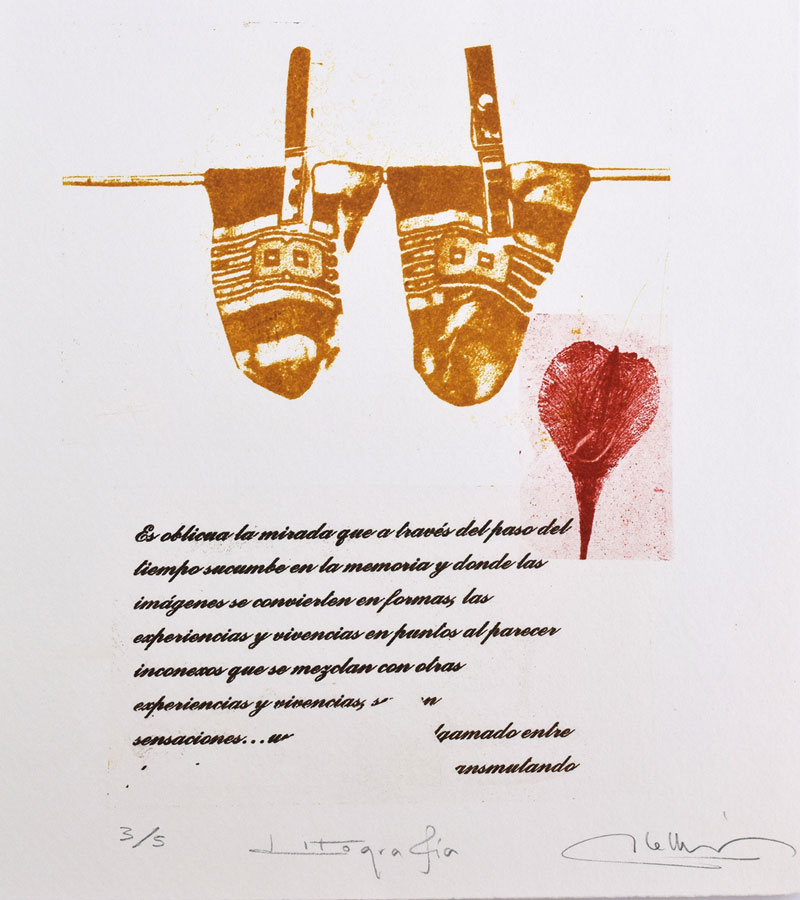 Es oblicua la mirada que a través del paso del
tiempo sucumbe en la memoria y donde las
imágenes se convierten en formas, las
experiencias y vivencias en puntos al parecer
inconexos que se mezclan con otras
experiencias y vivencias,
sensaciones...
entre
3/5 Litografía